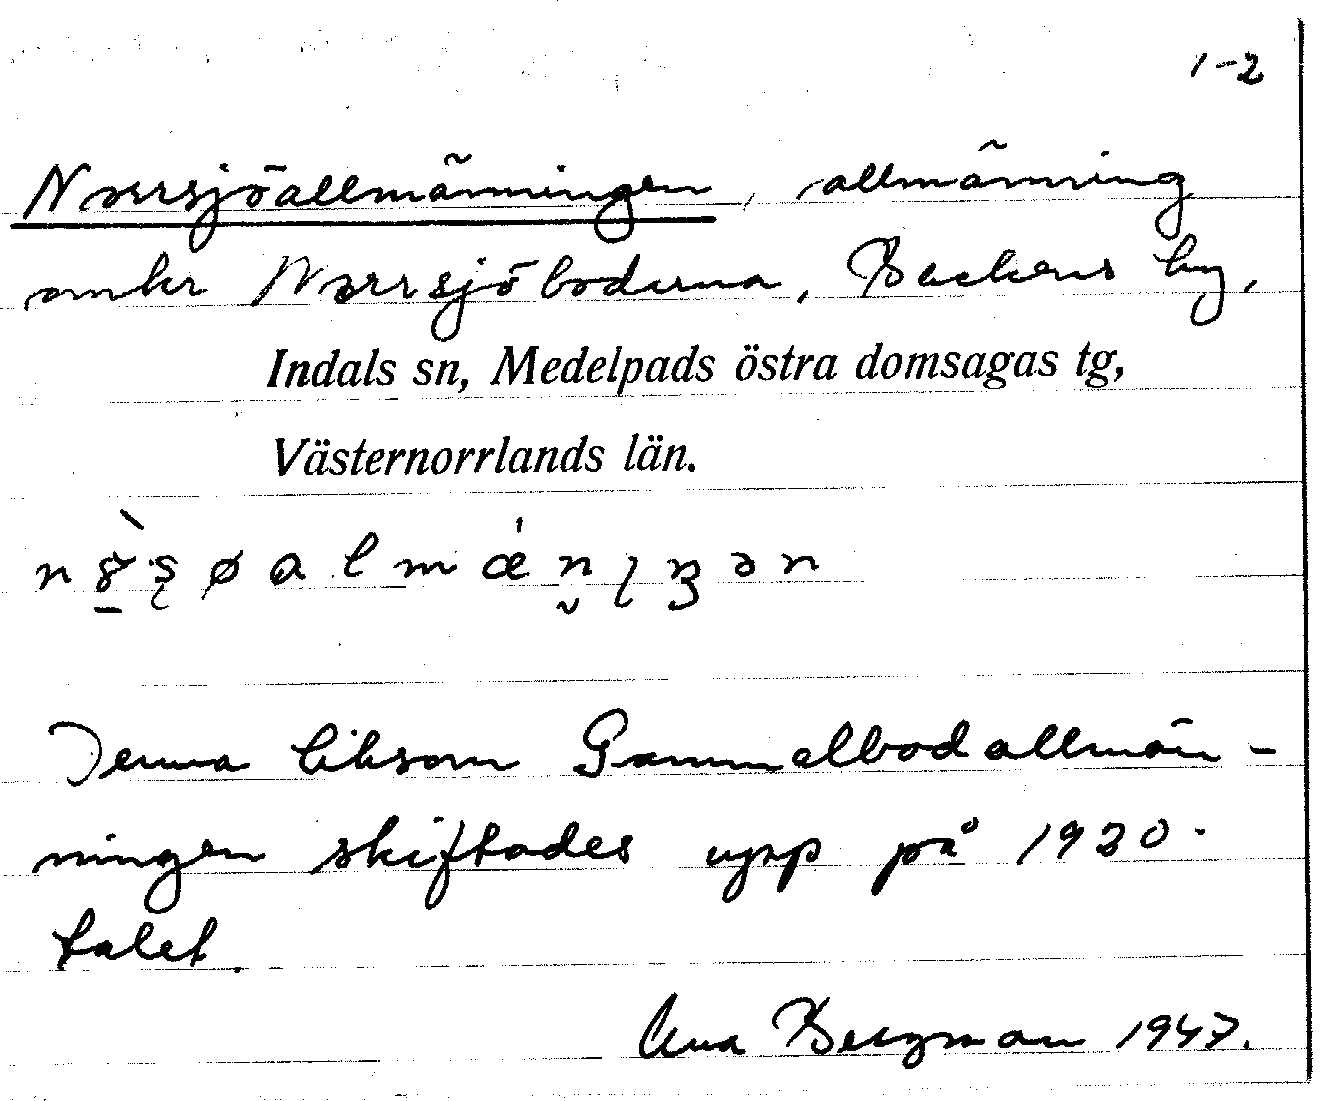 1-2
Norrsjöallmänningen, allmänning
omkr Norrsjöbodarna, Backens by,
Indals sn, Medelpads östra domsagas tg,
Västernorrlands län.
Denna liksom Gammelbodallmän-
ningen skiftades upp på 1920-
talet.
Bergman 1947.